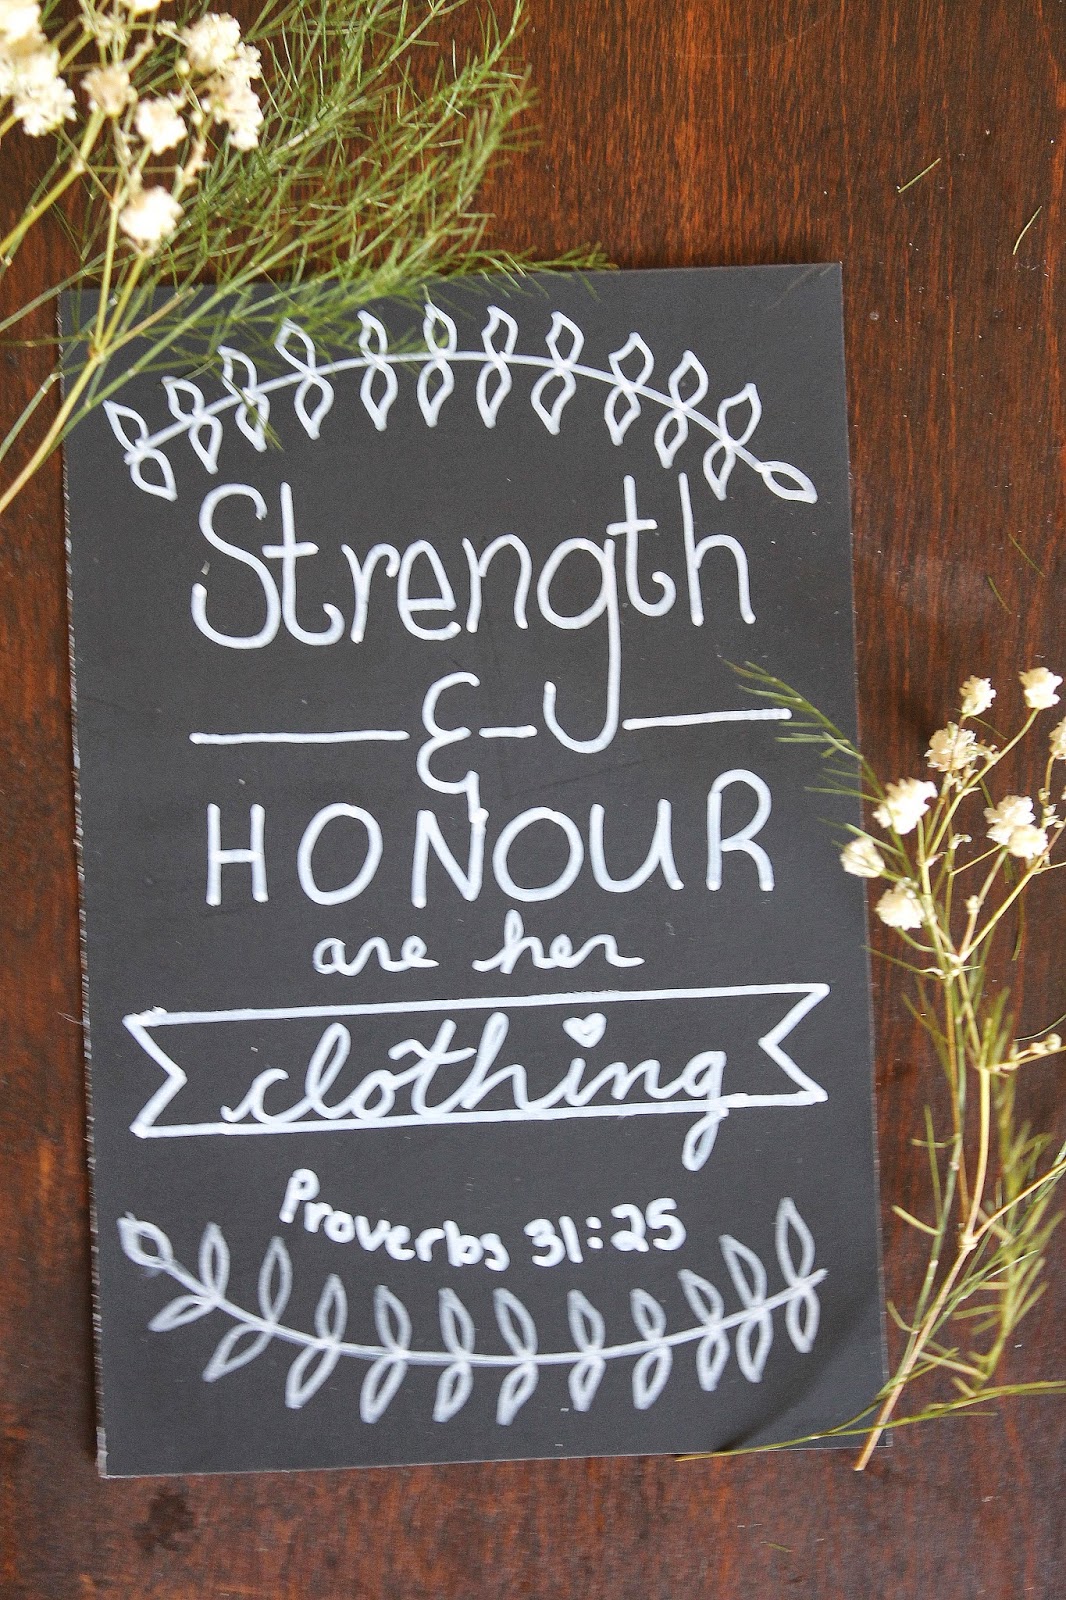 Strength
&
HONOUR
are her
clothing
Proverbs 31:25